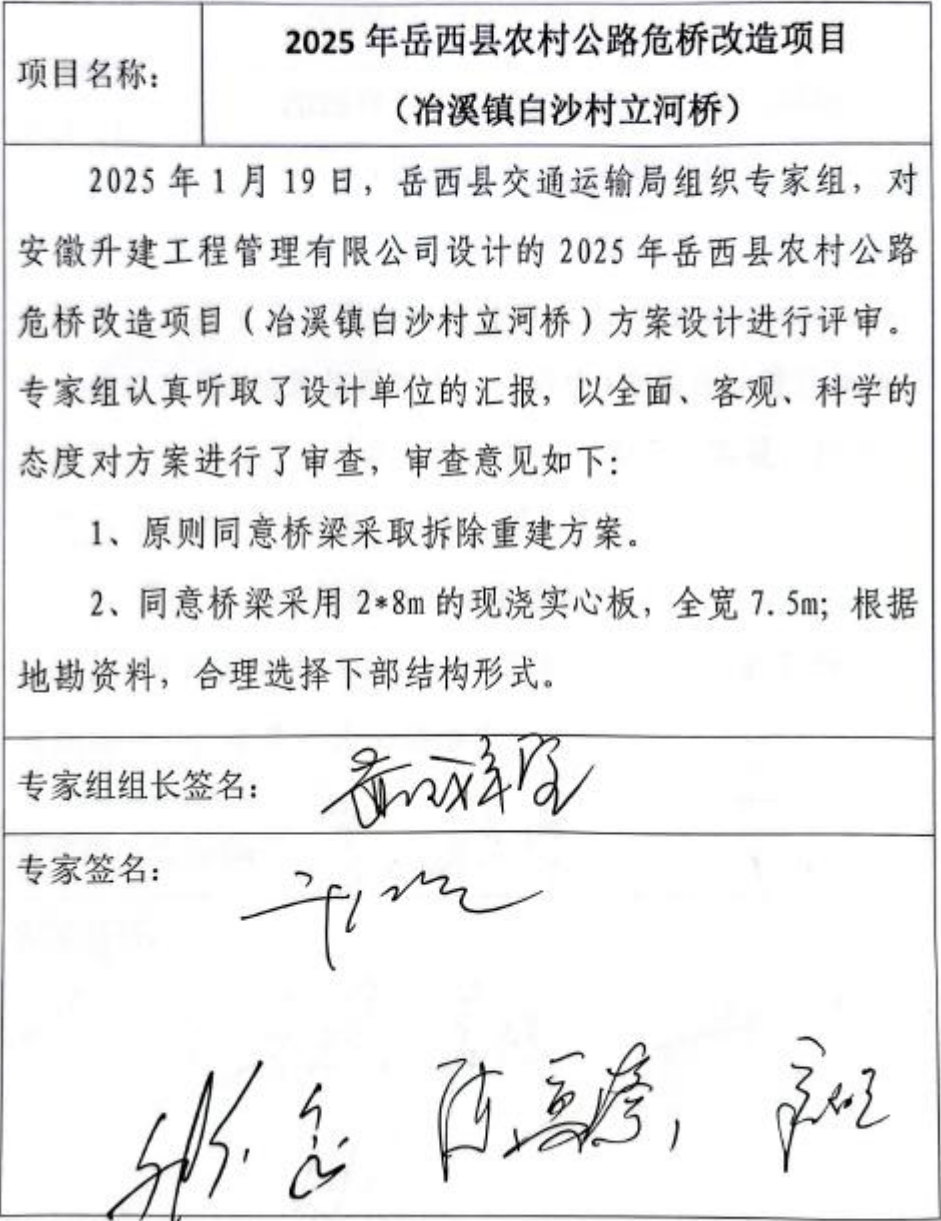 项目名称：
2025 年岳西县农村公路危桥改造项目
（冶溪镇白沙村立河桥）
2025 年 1 月 19 日，岳西县交通运输局组织专家组，对
安徽升建工程管理有限公司设计的 2025 年岳西县农村公路
危桥改造项目（冶溪镇白沙村立河桥）方案设计进行评审。
专家组认真听取了设计单位的汇报，以全面、客观、科学的
态度对方案进行了审查，审查意见如下：
1、原则同意桥梁采取拆除重建方案。
2、同意桥梁采用 2*8m 的现浇实心板，全宽 7.5m；根据
地勘资料，合理选择下部结构形式。
专家组组长签名：
专家签名：